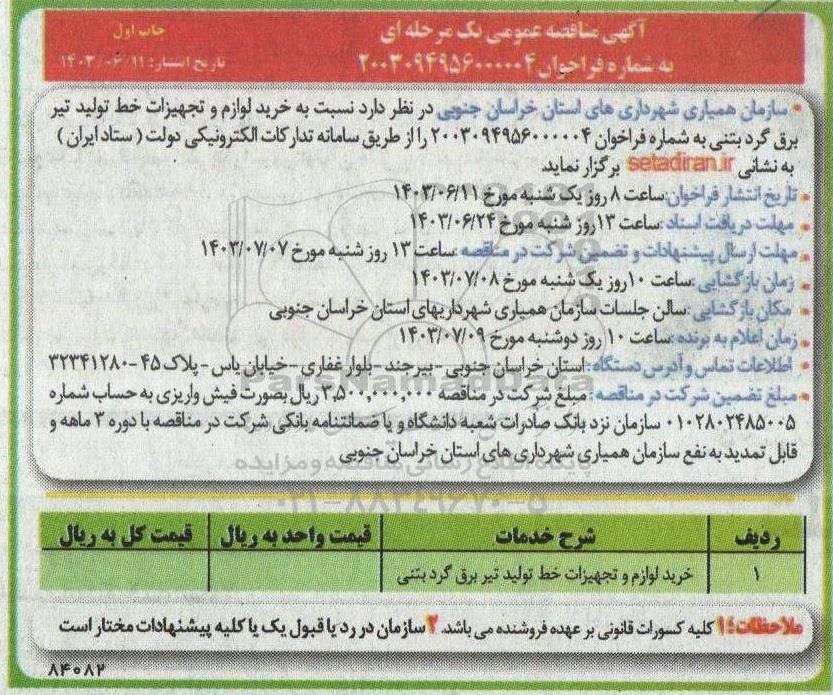 آگهی مناقصه عمومی یک مرحله ای
به شماره فراخوان ۲۰۰۳۰۹۴۹۵۶۰۰۰۰۰۴
چاپ اول
تاریخ انتشار: ۱۴۰۳/۰۶/۱۱
• سازمان همیاری شهرداری های استان خراسان جنوبی در نظر دارد نسبت به خرید لوازم و تجهیزات خط تولید تیر
برق گرد بتنی به شماره فراخوان ۲۰۰۳۰۹۴۹۵۶۰۰۰۰۰۴ را از طریق سامانه تدارکات الکترونیکی دولت ( ستاد ایران )
به نشانی setadiran.ir برگزار نماید.
• تاریخ انتشار فراخوان: ساعت ۸ روز یک شنبه مورخ ۱۴۰۳/۰۶/۱۱
• مهلت دریافت اسناد: ساعت ۱۳ روز شنبه مورخ ۱۴۰۳/۰۶/۲۴
• مهلت ارسال پیشنهادات و تضمین شرکت در مناقصه: ساعت ۱۳ روز شنبه مورخ ۱۴۰۳/۰۷/۰۷
• زمان بازگشایی: ساعت ۱۰ روز یک شنبه مورخ ۱۴۰۳/۰۷/۰۸
• مکان بازگشایی: سالن جلسات سازمان همیاری شهرداریهای استان خراسان جنوبی
• زمان اعلام به برنده: ساعت ۱۰ روز دوشنبه مورخ ۱۴۰۳/۰۷/۰۹
• اطلاعات تماس و آدرس دستگاه: استان خراسان جنوبی - بیرجند - بلوار غفاری - خیابان یاس - پلاک ۴۵ - ۳۲۳۴۱۲۸۰
• مبلغ تضمین شرکت در مناقصه: مبلغ شرکت در مناقصه ۳,۵۰۰,۰۰۰,۰۰۰ ریال بصورت فیش واریزی به حساب شماره
۰۱۰۲۸۰۲۴۸۵۰۰۵ سازمان نزد بانک صادرات شعبه دانشگاه و یا ضمانتنامه بانکی شرکت در مناقصه با دوره ۳ ماهه و
قابل تمدید به نفع سازمان همیاری شهرداری های استان خراسان جنوبی
ParsNamadData
پایگاه اطلاع رسانی مناقصه و مزایده
۰۲۱-۸۸۳۴۹۶۷۰-۵
ردیف شرح خدمات قیمت واحد به ریال قیمت کل به ریال
۱ خرید لوازم و تجهیزات خط تولید تیر برق گرد بتنی
ملاحظات: ۱ کلیه کسورات قانونی بر عهده فروشنده می باشد. ۲ سازمان در رد یا قبول یک یا کلیه پیشنهادات مختار است
۸۴۰۸۲